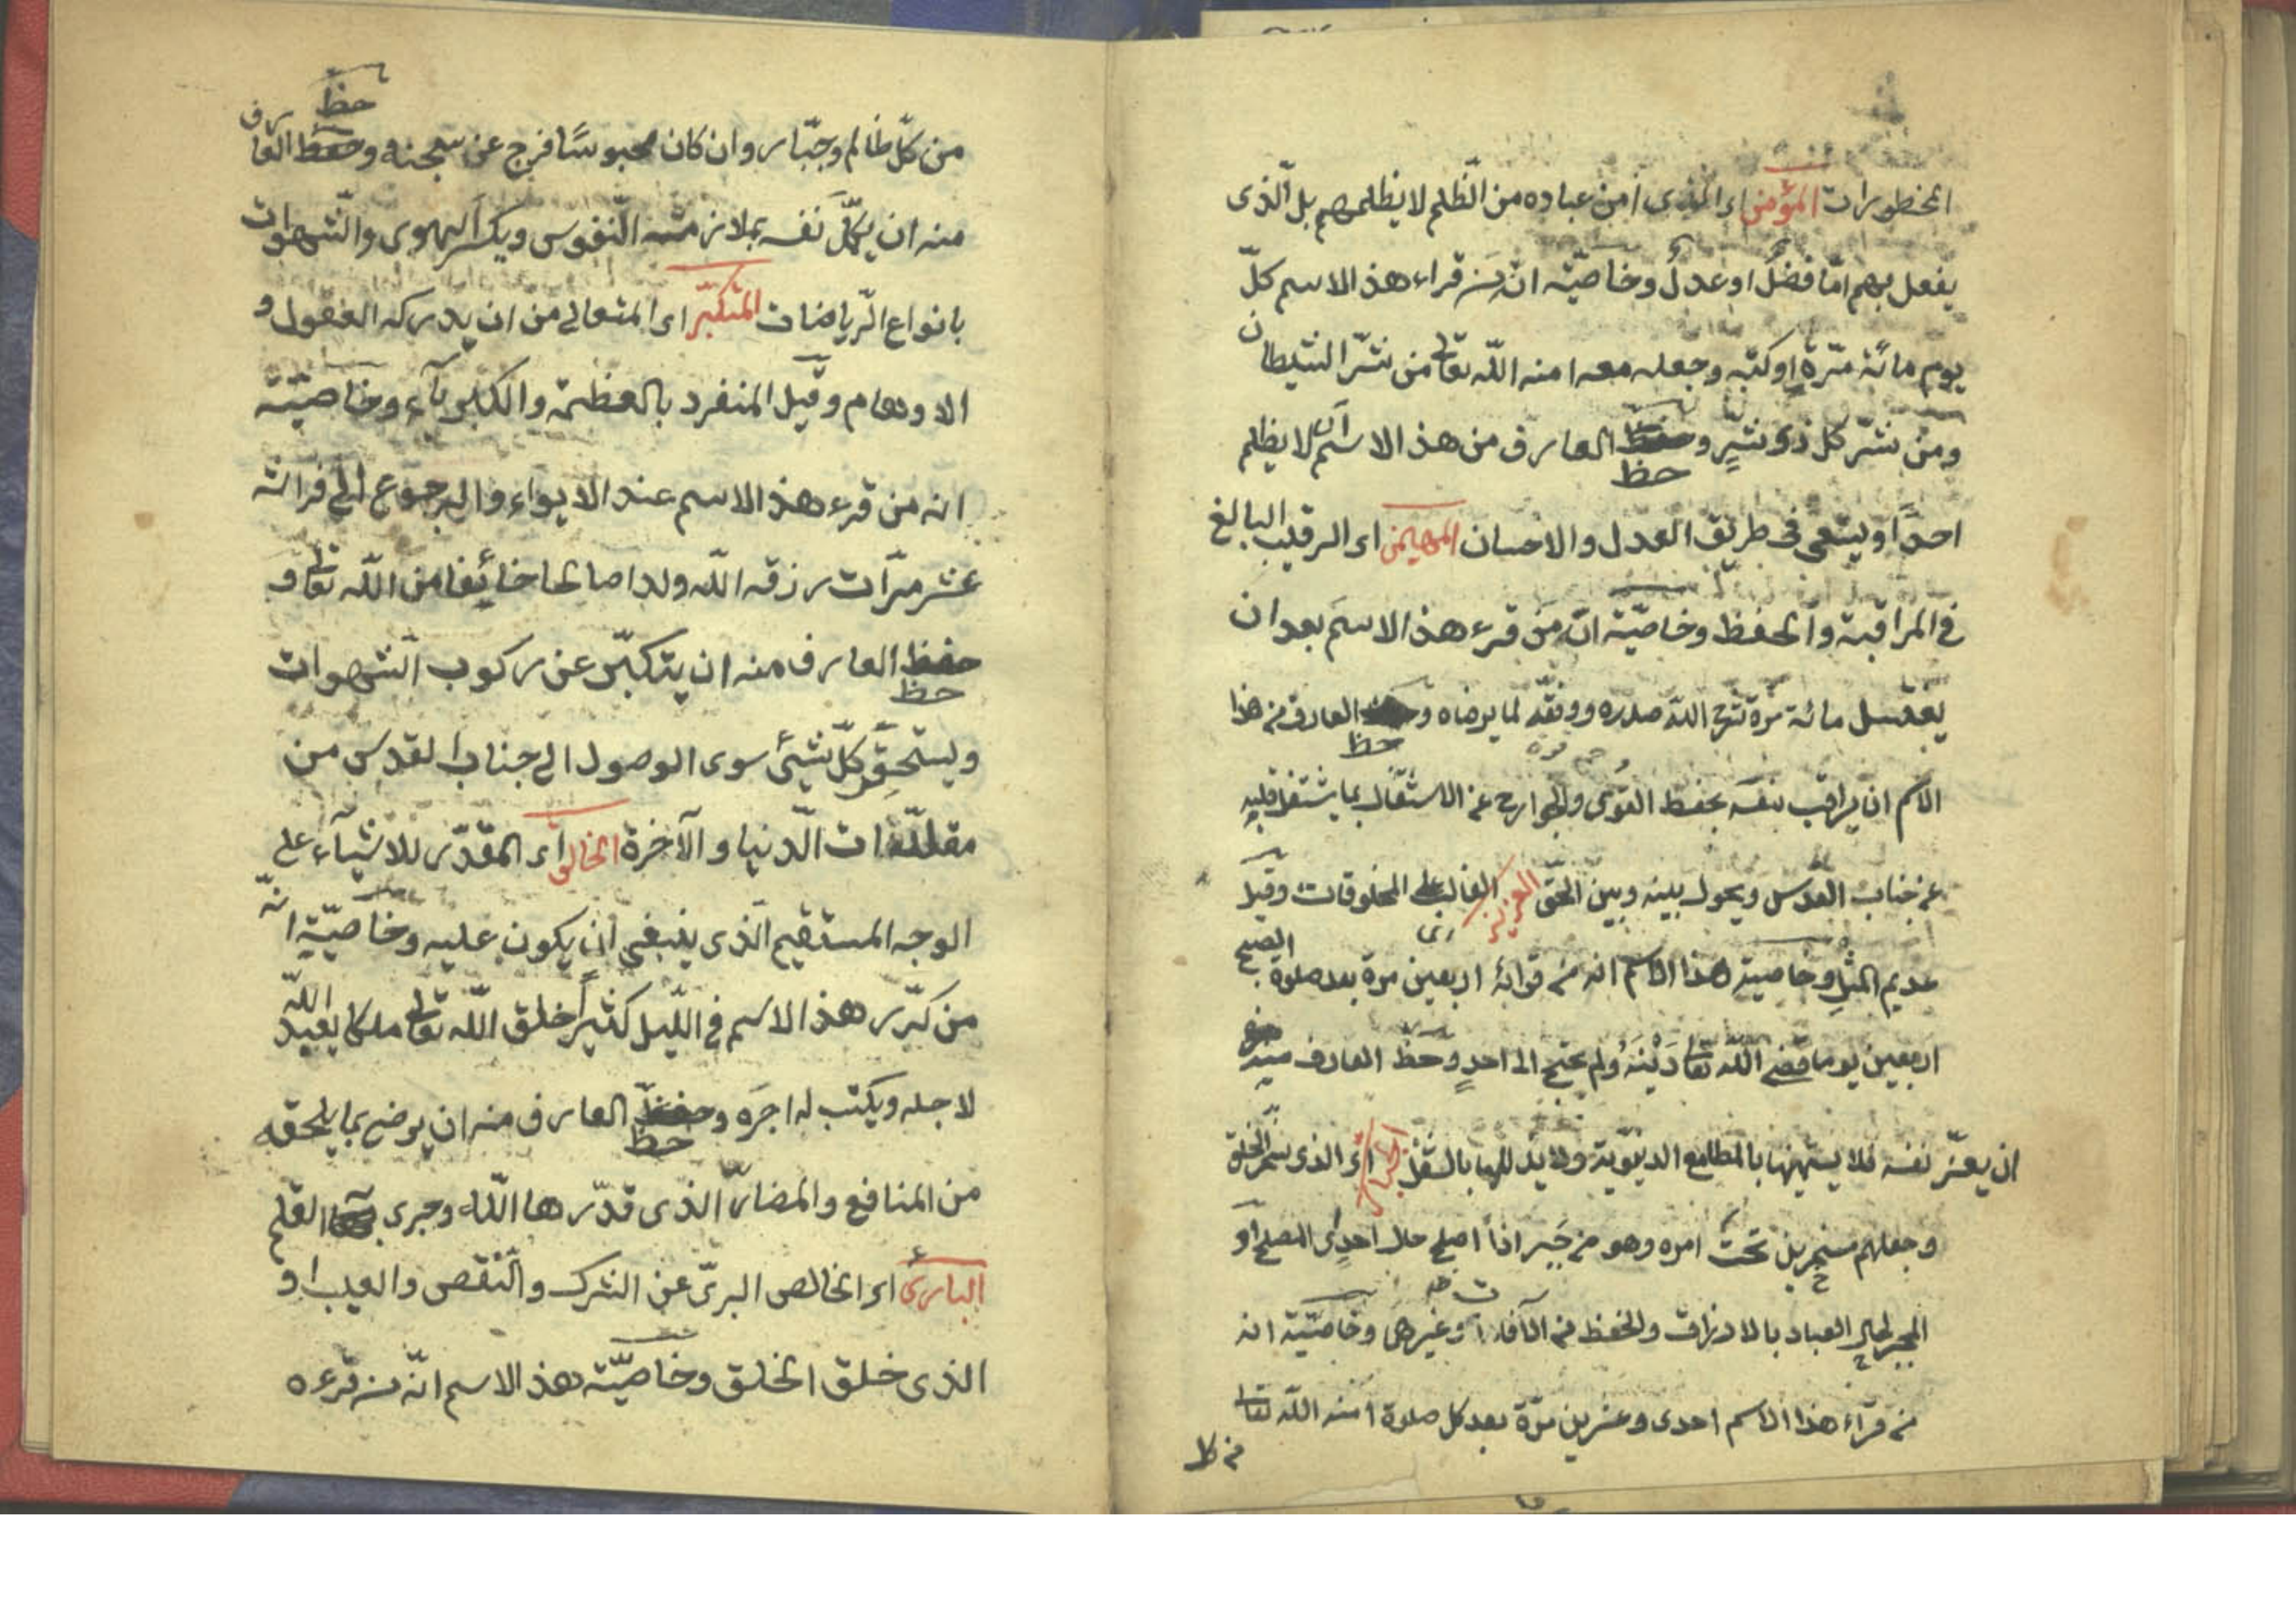 المخطورات المؤمن اى الذى أمن عباده من الظّلم لا يظلمهم بل الّذى
يفعل بهم امّا فضلٌ او عدلٌ وخاصيّته انّ من قراء هذ الاسم كلّ
يوم مائة مرّة او كتبه وجعله معه امنه اللّه تعا من شرّ الشيطان
ومن شرّ كل ذى شرٍّ وحفظ حظ العارف من هذ الاسم ان لا يظلم
احدًا ويسعى فى طريق العدل والاحسان المهيمن اى الرقيب البالغ
فى المراقبة والحفظ وخاصيّته انّ من قرء هذ الاسم بعد ان
يغتسل مائة مرة شرح اللّه صدره ووفقه لما يرضاه و حظ العارف من هذا
الاسم ان يراقب نفسه بحفظ القوى والجوارح عن الاشتغال بما يشتغل قلبه
عن جناب القدس ويحول بينه وبين الحق العزيز اى الغالب على المخلوقات وقيل
عديم المثل وخاصيته هذا الاسم انه من قرائه اربعين مرة بعد صلوة الصبح
اربعين يوما قضى اللّه تعا دَيْنَهُ ولم يحتج الى احدٍ وحظ العارف منه
ان يعزّ نفسه فلا يستهينها بالمطامع الدنيوية ولا يذللها بالسفل الجبار اى الذى سخّر الخلق
وجعلهم مسخرين تحت امره وهو من جَبر اذا اصلح حال احدٍ اى المصلح او
المجبر لحال العباد بالارزاق والحفظ من الآفات وغيرها وخاصيّته انه
من قرآء هذا الاسم احدى وعشرين مرّة بعد كل صلوة امنه اللّه تعا
من كل
من كلّ ظالم وجبّار وان كان محبوسًا فرج عن سجنه وحفظ حظ العارف
منه ان يكمّل نفسه بملازمته النّفوس ويكسر الهوى والشّهوات
بانواع الرّياضات المتكبّر اى المتعالى من ان يدركه العقول و
الاوهام وقيل المنفرد بالعظمة والكبرياء وخاصيّته
انه من قرء هذ الاسم عند الايواء والرجوع الى فراشه
عشر مرّات رزقه اللّه ولدا صالحا خائفا من اللّه تعا و
حفظ حظ العارف منه ان يتكبّر عن ركوب الشهوات
ويستحقر كلّ شيئ سوى الوصول الى جناب القدس من
مستلذّات الدّنيا والآخرة الخالق اى المقدّر للاشيآء على
الوجه المستقيم الّذى ينبغى ان يكون عليه وخاصيّته انّه
من كرّر هذ الاسم فى اللّيل كثيراً خلق اللّه تعا ملكا يعبد اللّه
لاجله ويكتب له اجرَه وحفظ حظ العارف منه ان يرضى بما يلحقه
من المنافع والمضارّ الّذى قدّرها اللّه وجرى القلم
البارئ اى الخالص البرىّ عن الشرك والنّقص والعيب او
الذى خلق الخلق وخاصيّته هذ الاسم انّه من قرءه